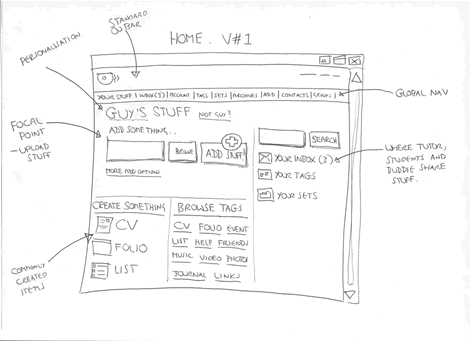 HOME. V#1
STANDARD
OU BAR
PERSONALISATION
YOUR STUFF | INBOX(3) | ACCOUNT | TAGS | SETS | ARCHIVES | ADD | CONTACTS | GROUPS |
GLOBAL NAV
GUY'S STUFF NOT GUY?
FOCAL
POINT
- UPLOAD
STUFF
ADD SOMETHING...
BROWSE
ADD STUFF
SEARCH
MORE ADD OPTIONS
YOUR INBOX (3)
YOUR TAGS
YOUR SETS
WHERE TUTOR,
STUDENTS AND
BUDDIE SHARE
STUFF.
CREATE SOMETHING
CV
FOLIO
LIST
COMMONLY
CREATED
ITEMS
BROWSE TAGS
CV FOLIO EVENT
LIST HELP FRIENDS
MUSIC VIDEO PHOTOS
JOURNAL LINKS